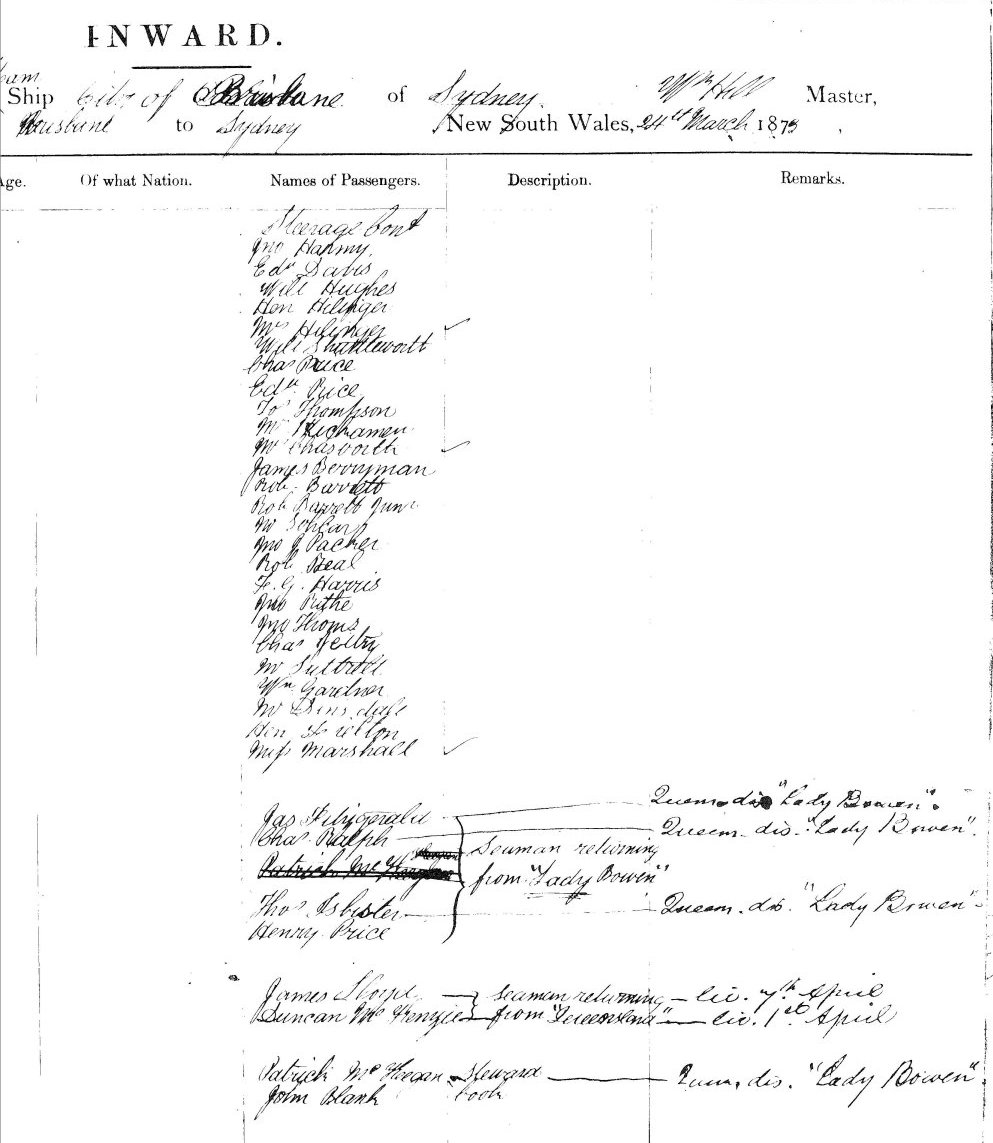 INWARD.
Ship City of Brisbane of Sydney. Wm Hill Master,
Brisbane to Sydney New South Wales, 24th March 1873
Age. Of what Nation. Names of Passengers. Description. Remarks.
Steerage Cont
Jno Hanmy.
Edw Davis
Will Hughes
Hen Hilinger
Mrs Hilinger
Will Shuttleworth
Chas Price
Edw Price
Jos Thompson
Mr
Mrs Chasworth
James Berryman
Rob Barrett
Rob Barrett Junr
Mr Schearp
Jno J Packer
Rob Beal
F. G. Harris
Jno
Jno Thoms
Chas
Mr Luttrell
Wm Gardner
Mr Dinsdale
Hen
Miss Marshall
Jas Fitzgerald Queen. dis "Lady Bowen".
Chas Ralph Queen. dis. "Lady Bowen".
Patrick Mc Seaman returning
from "Lady Bowen"
Thos Isbister Queen. dis. "Lady Bowen"
Henry Price
James Thorpe seaman returning lic. 7th April
Duncan McKenzie from "Queensland" lic. 1st April
Patrick McKeegan Steward Queen. dis. "Lady Bowen"
John Blank Cook